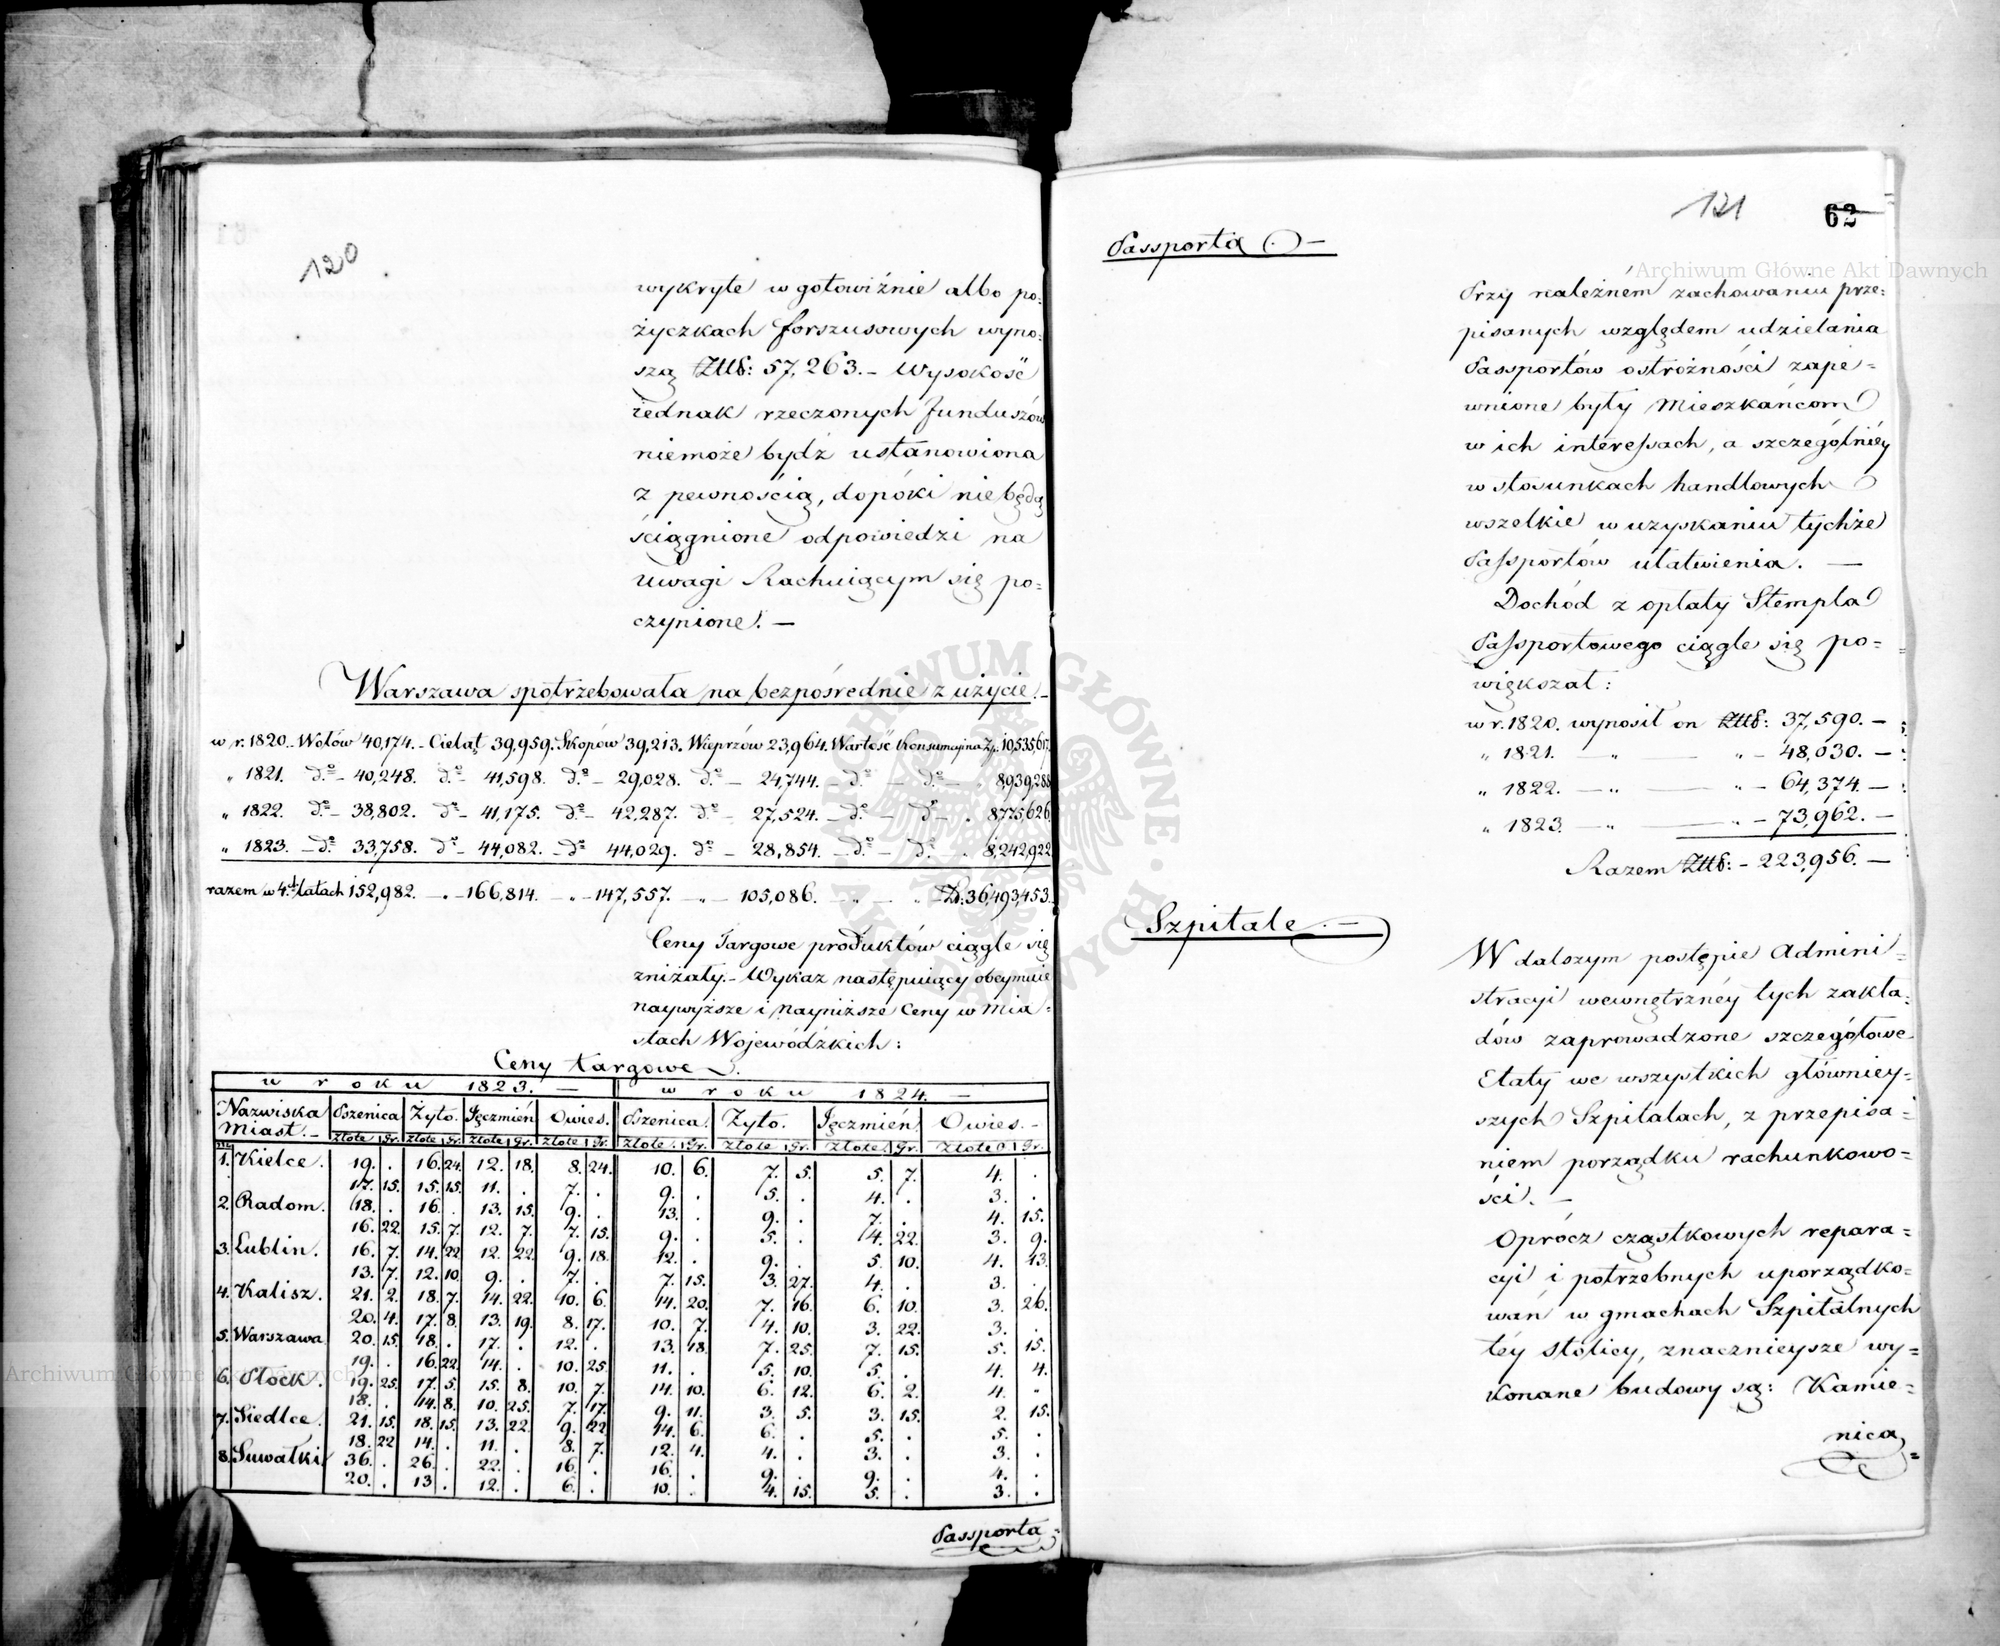 120
wykryte w gotowiźnie albo po=
życzkach forszusowych wyno=
szą Złłś: 57,263.– Wysokość
iednak rzeczonych funduszów
niemoże bydź ustanowiona
z pewnością, dopóki nie będą
ściągnione odpowiedzi na
uwagi Rachuiącym się po=
czynione. –
Warszawa spotrzebowała na bezpośrednie z użycie.–
w r. 1820. Wołów 40,174. – Cieląt 39,959. Skopów 39,213. Wieprzów 23,964. Wartość Konsumcyjna Zp: 10,535,617.
„ 1821. do – 40,248. do – 41,598. do – 29,028. do – 24,744. – do – do – „ 8,939,288
„ 1822. do – 38,802. do – 41,175. do – 42,287. do – 27,524. – do – do – „ 8,775,626.
„ 1823. – do 33,758. do – 44,082. – do 44,029. do – 28,854. – do – do „ 8,242,922
razem w 4. latach 152,982. – „ – 166,814. – „ – 147,557. – „ – 105,086. – „ – „ – 36,493,453.
Ceny Targowe produktów ciągle się
zniżały.– Wykaz następuiący obeymuie
naywyższe i nayniższe Ceny w Mia=
stach Wojewódzkich:
Ceny targowe.
w roku 1823. – w roku 1824. –
Nazwiska Miast. – Pszenica Żyto. Jęczmień Owies. Pszenica. Żyto. Jęczmień Owies. –
złote gr. złote gr. złote gr. złote gr. złote gr. złote gr. złote gr. złote gr.
1. Kielce. 19. . 16. 24. 12. 18. 8. 24. 10. 6. 7. 5. 5. 7. 4. .
17. 15. 15. 15. 11. . 7. . 9. . 5. . 4. . 3. .
2. Radom. 18. . 16. . 13. 15. 9. . 13. . 9. . 7. . 4. 15.
16. 22. 15. 7. 12. 7. 7. 15. 9. . 5. . 4. 22. 3. 9.
3. Lublin. 16. 7. 14. 22 12. 22. 9. 18. 12. . 9. . 5. 10. 4. 13.
13. 7. 12. 10. 9. . 7. . 7. 15. 3. 27. 4. . 3. .
4. Kalisz. 21. 2. 18. 7. 14. 22. 10. 6. 14. 20. 7. 16. 6. 10. 3. 26.
20. 4. 17. 8. 13. 19. 8. 17. 10. 7. 4. 10. 3. 22. 3. .
5. Warszawa 20. 15. 18. . 17. . 12. . 13. 18. 7. 25. 7. 15. 5. 15.
19. . 16. 22. 14. . 10. 25 11. . 5. 10. 5. . 4. 4.
6. Płock. 19. 25. 17. 5. 15. 8. 10. 7. 14. 10. 6. 12. 6. 2. 4. „
18. . 14. 8. 10. 25. 7. 17. 9. 11. 3. 5. 3. 15. 2. 15.
7. Siedlce. 21. 15. 18. 15. 13. 22. 9. 22 14. 6. 6. . 5. . 5. .
18. 22 14. . 11. . 8. 7. 12. 4. 4. . 3. . 3. .
8. Suwałki 36. . 26. . 22. . 16. . 16. . 9. . 9. . 4. .
20. . 13 . 12. . 6. . 10. . 4. 15. 5. . 3. .
Passporta
121
62
Passporta –
Przy należném zachowaniu prze=
pisanych względem udzielania
Passportów ostróżności zape=
wnione były Mieszkańcom
w ich interessach, a szczególniéy
w stosunkach handlowych
wszelkie w uzyskaniu tychże
Passportów ułatwienia. –
Dochód z opłaty Stempla
Passportowego ciągle się po=
większał:
w r. 1820. wynosił on Złłś: 37,590. –
„ 1821. – „ – „ – 48,030. –
„ 1822. – „ – „ – 64,374. –
„ 1823. – „ – „ – 73,962. –
Razem Złłś: – 223,956. –
Szpitale. –
W dalszym postępie Admini=
stracyi wewnętrznéy tych zakła=
dów zaprowadzone szczegółowe
Etaty we wszystkich główniey=
szych Szpitalach, z przepisa=
niem porządku rachunkowo=
ści. –
Oprócz cząstkowych repara=
cyi i potrzebnych uporządko=
wań w gmachach Szpitalnych
téy stolicy, znacznieysze wy=
konane budowy są: Kamie=
nica
Archiwum Główne Akt Dawnych
Archiwum Główne Akt Dawnych
ARCHIWUM GŁÓWNE AKT DAWNYCH